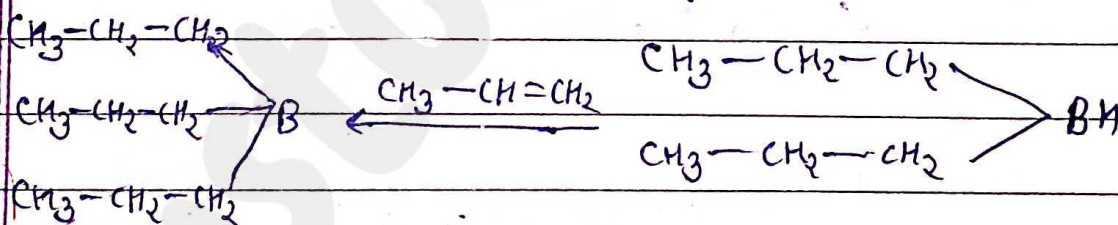 CH₃-CH₂-CH₂
CH₃-CH₂-CH₂
CH₃-CH₂-CH₂
B
CH₃-CH=CH₂
CH₃-CH₂-CH₂
CH₃-CH₂-CH₂
BH